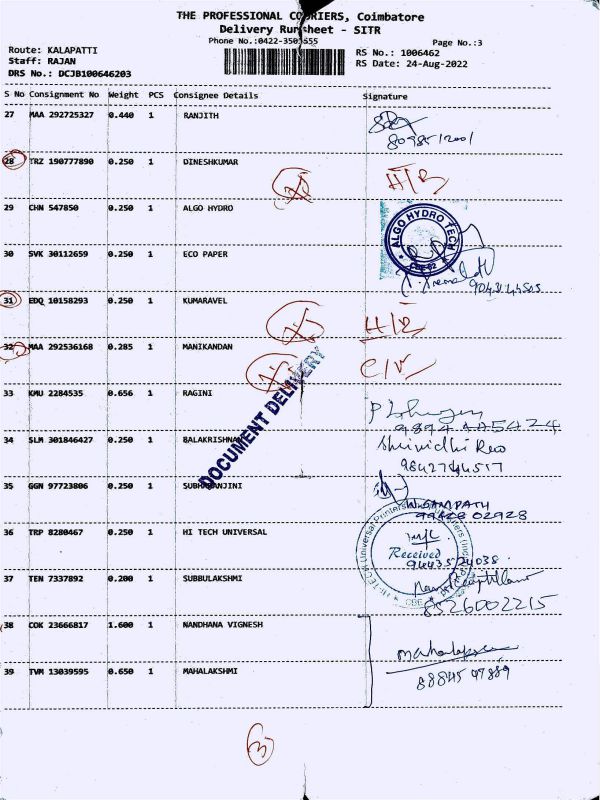 THE PROFESSIONAL COURIERS, Coimbatore
Delivery Runsheet - SITR
Phone No.:0422-3503555
Page No.:3
Route: KALAPATTI
RS No.: 1006462
Staff: RAJAN
RS Date: 24-Aug-2022
DRS No.: DCJB100646203
S No Consignment No Weight PCS Consignee Details Signature
27 MAA 292725327 0.440 1 RANJITH
28 TRZ 190777890 0.250 1 DINESHKUMAR
29 CHN 547850 0.250 1 ALGO HYDRO
ALGO HYDRO TECH
30 SVK 30112659 0.250 1 ECO PAPER
31 EDQ 10158293 0.250 1 KUMARAVEL
32 MAA 292536168 0.285 1 MANIKANDAN
DOCUMENT DELIVERY
33 KMU 2284535 0.656 1 RAGINI
34 SLM 301846427 0.250 1 BALAKRISHNAN
Shrividhi Reo
35 GGN 97723806 0.250 1 SUBHARANJINI
99428 02928
36 TRP 8280467 0.250 1 HI TECH UNIVERSAL
Received
37 TEN 7337892 0.200 1 SUBBULAKSHMI
8526002215
38 COK 23666817 1.600 1 NANDHANA VIGNESH
39 TVM 13039595 0.650 1 MAHALAKSHMI
3